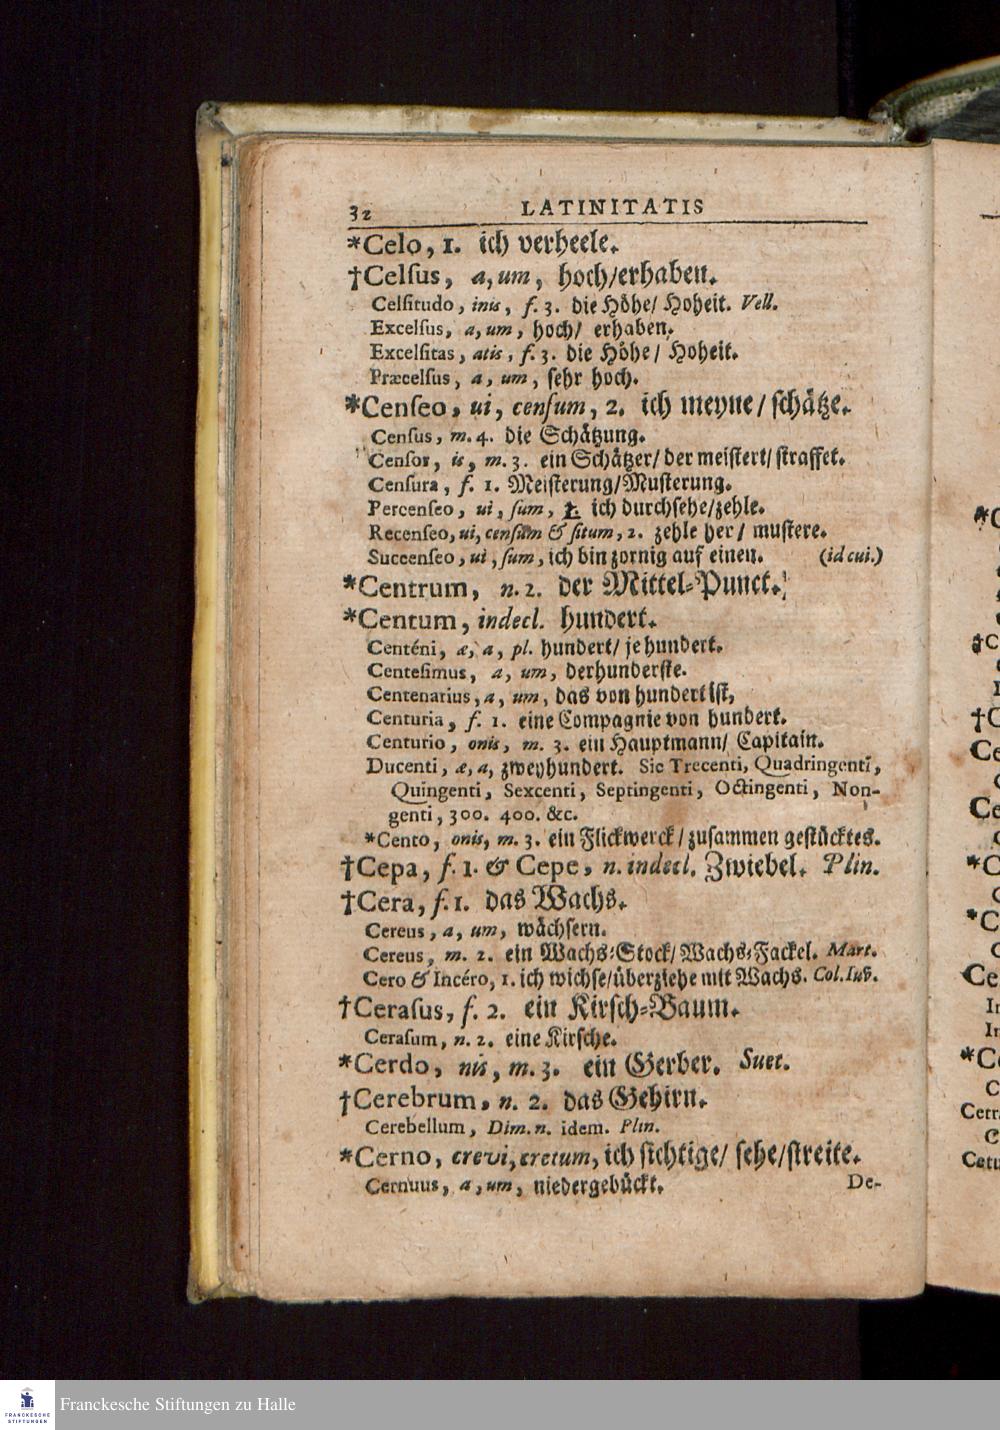 32 LATINITATIS
*Celo, 1. ich verheele.
†Celſus, a, um, hoch/erhaben.
Celſitudo, inis, f. 3. die Höhe/ Hoheit. Vell.
Excelſus, a, um, hoch/ erhaben.
Excelſitas, atis, f. 3. die Höhe/ Hoheit.
Præcelſus, a, um, ſehr hoch.
*Cenſeo, ui, cenſum, 2. ich meyne/ ſchätze.
Cenſus, m. 4. die Schätzung.
Cenſor, is, m. 3. ein Schätzer/ der meiſtert/ ſtraffet.
Cenſura, f. 1. Meiſterung/Muſterung.
Percenſeo, ui, ſum, 2. ich durchſehe/zehle.
Recenſeo, ui, cenſum & ſitum, 2. zehle her/ muſtere.
Succenſeo, ui, ſum, ich bin zornig auf einen. (id cui.)
*Centrum, n. 2. der Mittel-Punct.
*Centum, indecl. hundert.
Centéni, æ, a, pl. hundert/ je hundert.
Centeſimus, a, um, derhunderſte.
Centenarius, a, um, das von hundert iſt,
Centuria, f. 1. eine Compagnie von hundert.
Centurio, onis, m. 3. ein Hauptmann/ Capitain.
Ducenti, æ, a, zweyhundert. Sic Trecenti, Quadringenti,
Quingenti, Sexcenti, Septingenti, Octingenti, Non-
genti, 300. 400. &c.
*Cento, onis, m. 3. ein Flickwerck/ zuſammen geſtücktes.
†Cepa, f. 1. & Cepe, n. indecl. Zwiebel. Plin.
†Cera, f. 1. das Wachs.
Cereus, a, um, wächſern.
Cereus, m. 2. ein Wachs-Stock/ Wachs-Fackel. Mart.
Cero & Incéro, 1. ich wichſe/überziehe mit Wachs. Col. Iuv.
†Ceraſus, f. 2. ein Kirſch-Baum.
Ceraſum, n. 2. eine Kirſche.
*Cerdo, nis, m. 3. ein Gerber. Suet.
†Cerebrum, n. 2. das Gehirn.
Cerebellum, Dim. n. idem. Plin.
*Cerno, crevi, cretum, ich ſichtige/ ſehe/ſtreite.
Cernuus, a, um, niedergebückt. De-
FRANCKESCHE
STIFTUNGEN
Franckesche Stiftungen zu Halle